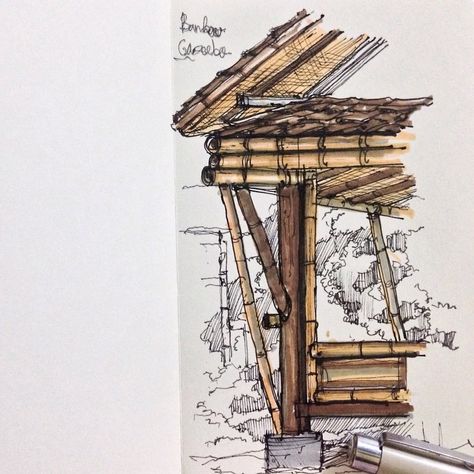 Bamboo
Gazebo